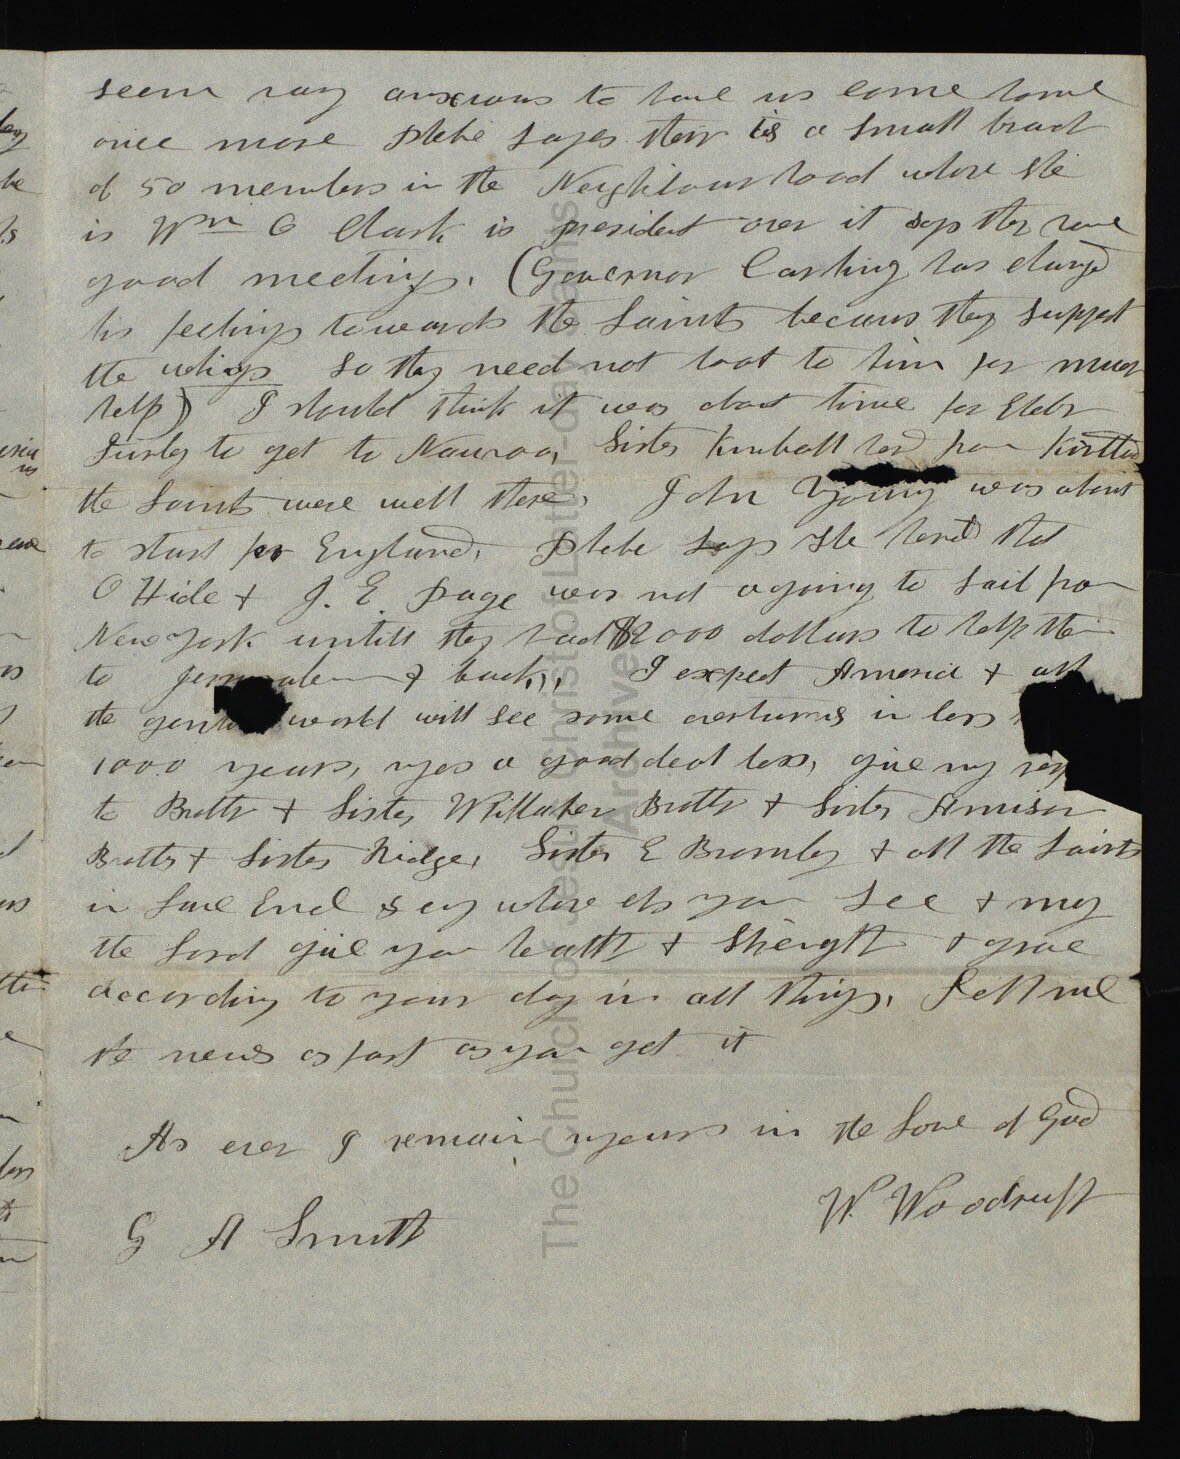 seem vary anxious to have us come home
once more Phebe sayes their is a small branch
of 50 members in the Neighbourhood whare she
is Wm O Clark is president over it says they have
good meetings. (Governor Carling has changed
his feelings towards the Saints becaus they support
the whigs So they need not look to him for much
help) I should think it was about time for Elder
Turley to get to Nauvoo, Sister Kimball had from Kirtland
the Saints were well there, John Young was about
to start for England, Phebe says she heard that
O Hide & J. E. Page was not agoing to sail from
New York untill they had $2000 dollars to help them
to Jerusalem & back, I expect America & all
the gentile world will see some overturns in less
1000 years, yes a good deal less, give my
to Brother & Sister Whittaker Brother & Sister Amison
Brother & Sister Ridge, Sister E Bromley & all the Saints
in Lane End & ey whare els you See & may
the Lord give you health & Strength & grace
according to your day in all things, Let me
the news as fast as you get it
As ever I remain yours in the Love of God
W. Woodruff
G A Smith
The Church of Jesus Christ of Latter-day Saints
Archives